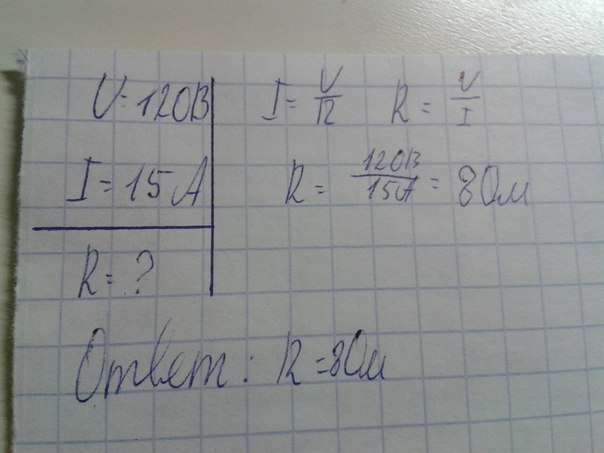 U=120В
I=15А
R=?
I=U/R R=U/I
R=120В/15А=8Ом
Ответ: R=8Ом